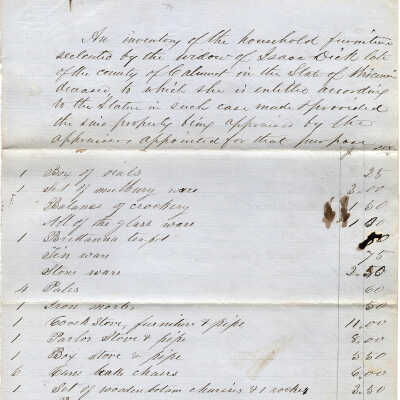 An inventory of the household furniture
selected by the widow of Isaac Dick late
of the county of Calumet in the State of
deceased, to which she is entitled according
to the Statue in such case made & provided
the said property being appraised by the
appraisers appointed for that purpose
1 Box of 25
1 Set of mulbury ware 3.00
Balance of crockery 1 50
All of the glass ware 1
1 Britannia
Tin ware 75
Stone ware 2.50
4 Pales 60
1 Iron 50
1 Cook Stove, furniture & pipe 11.00
1 Parlor Stove & pipe 8.00
1 Box stove & pipe 5 50
6 Cane chairs 6.00
1 Set of wooden bottom chairs & 1 rocker 2.50